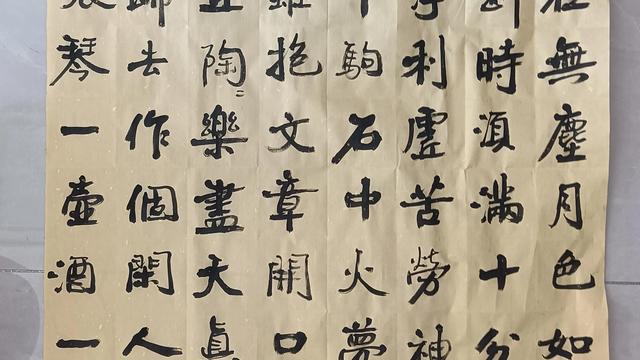 無塵月色如
時須滿十分
利虛苦勞神
中駒石中火夢
雖抱文章開口
且陶〻樂盡天真
歸去作個閑人
張琴一壺酒一